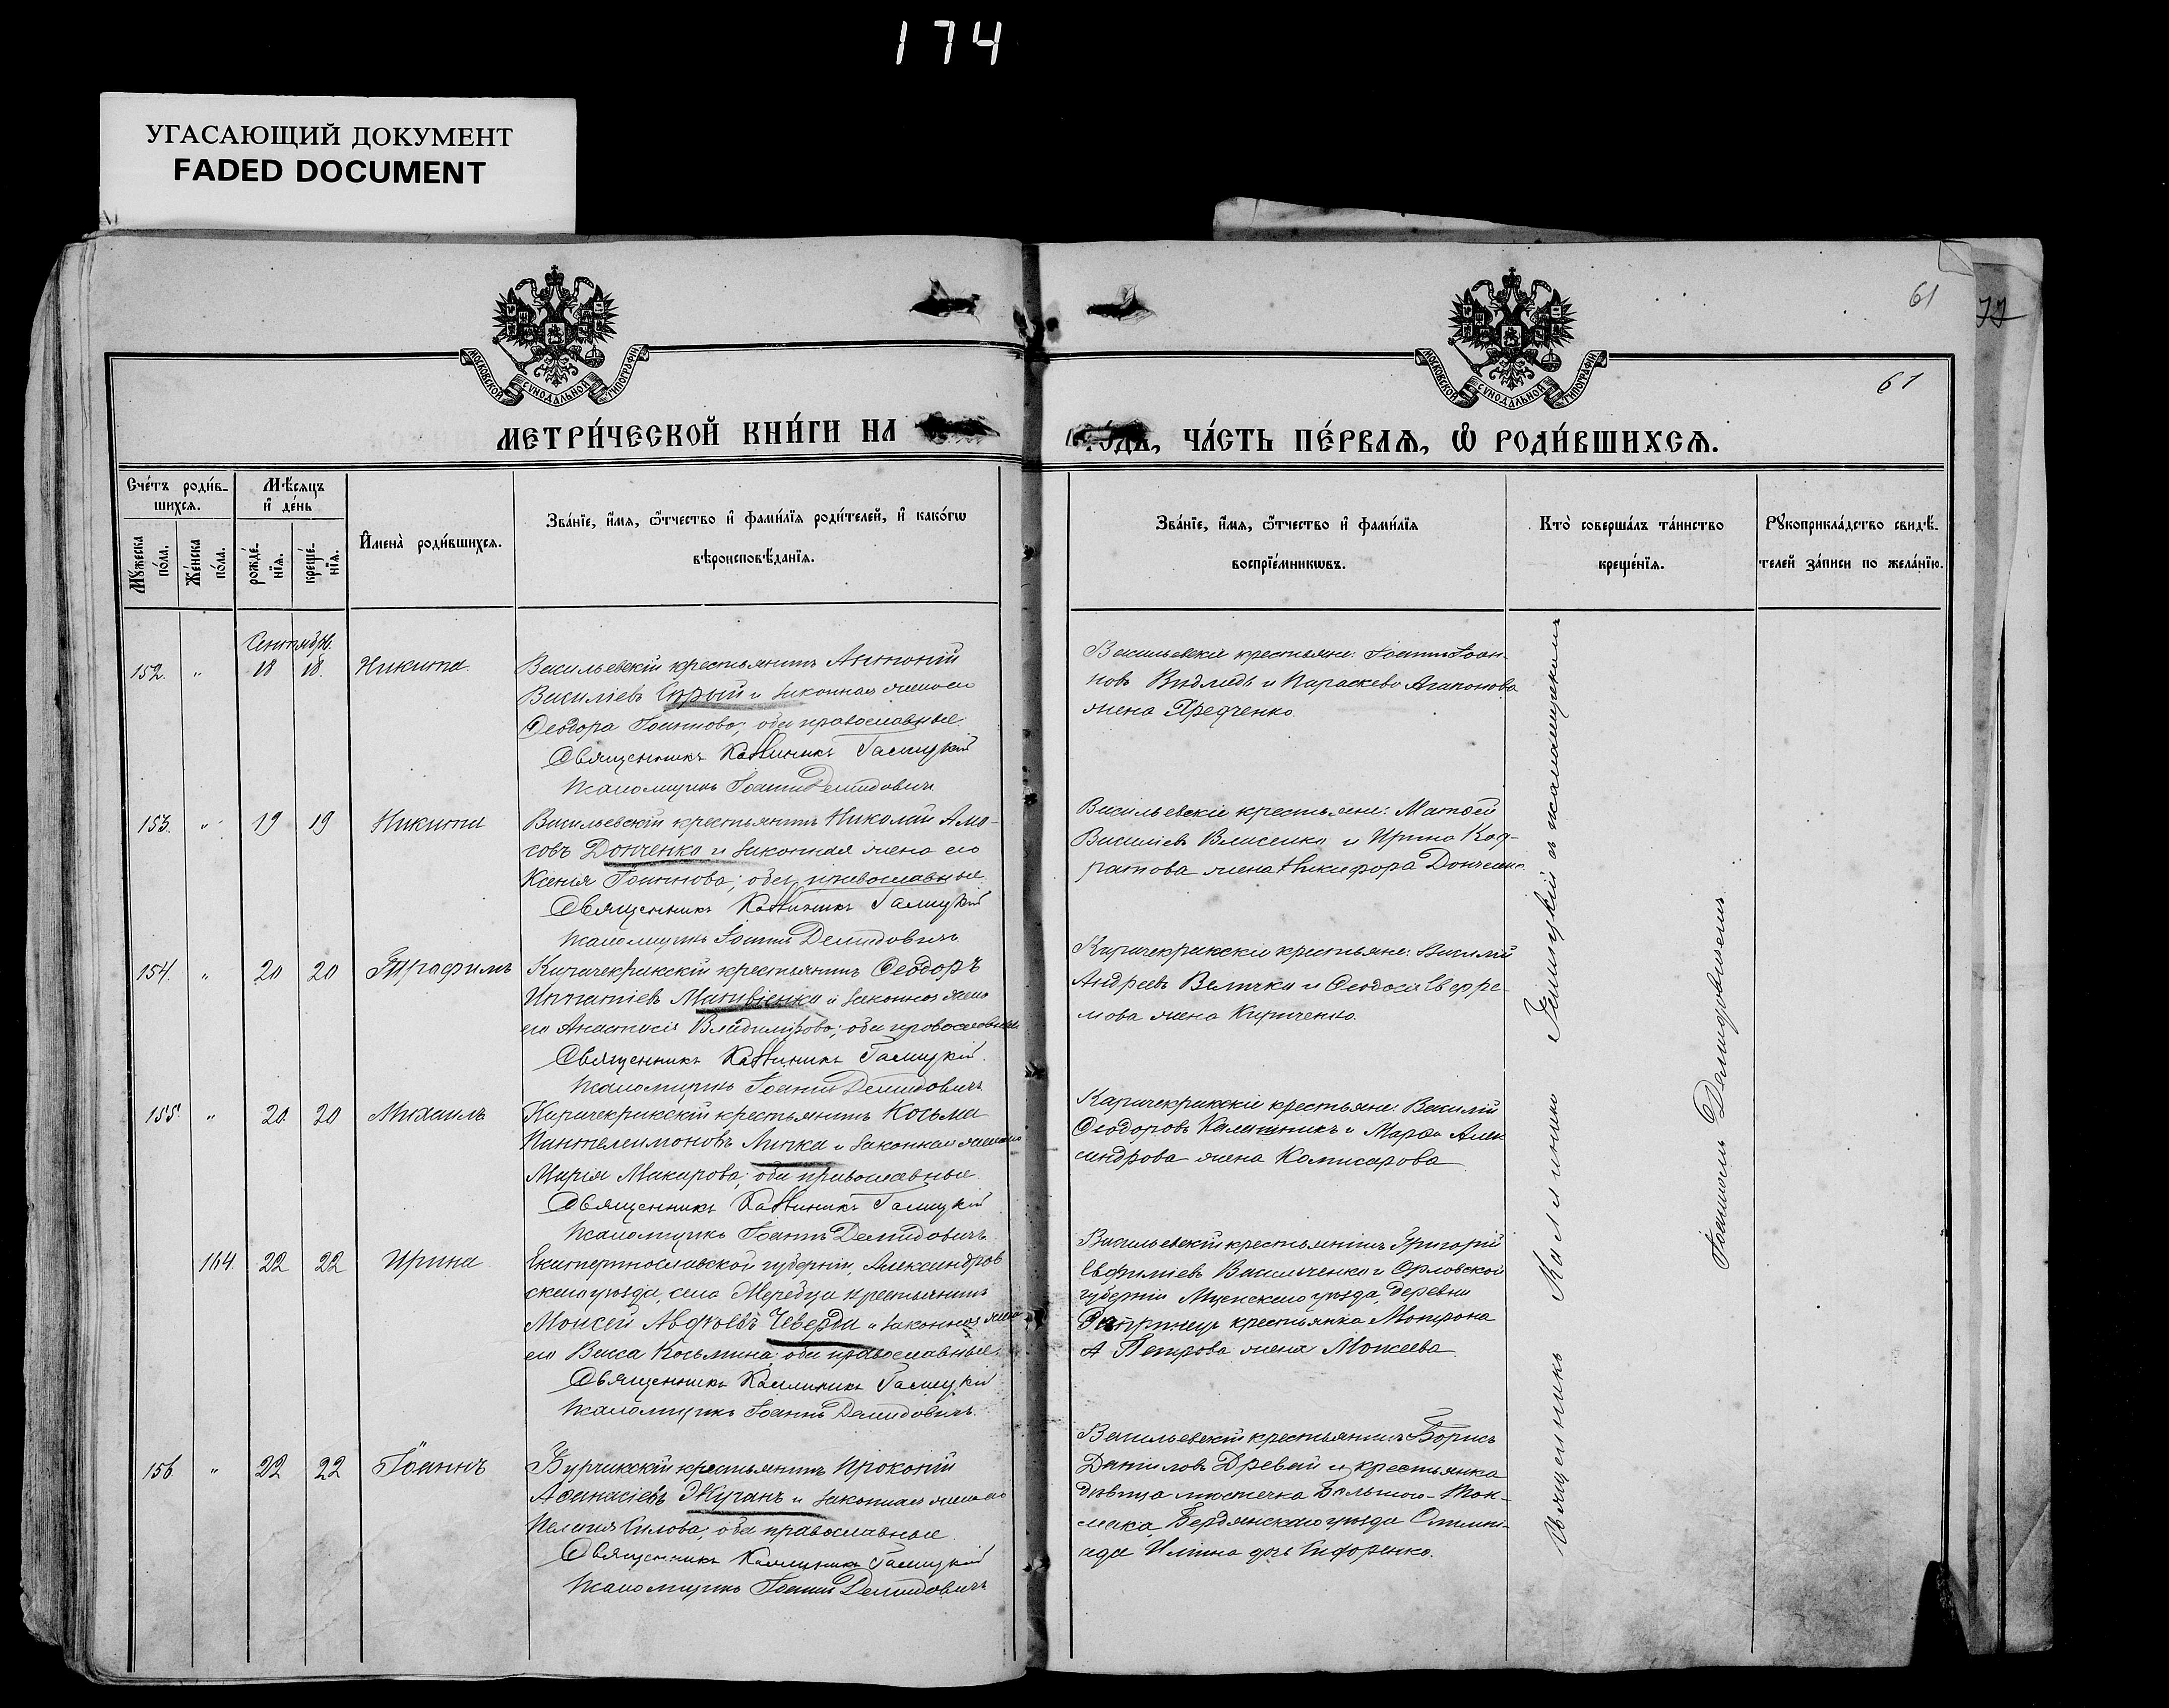 174
УГАСАЮЩИЙ ДОКУМЕНТ
FADED DOCUMENT
61
61
МОСКОВСКОЙ СѴНОДАЛЬНОЙ ТИПОГРАФІИ
МОСКОВСКОЙ СѴНОДАЛЬНОЙ ТИПОГРАФІИ
МЕТРИ́ЧЕСКОЙ КНИ́ГИ НА
ЧА́СТЬ ПЕ́РВАѦ, Ѡ҆ РОДИ́ВШИХСѦ.
Сче́тъ роди́в-
шихсѧ.
Мꙋ́жеска по́ла.
Же́нска по́ла.
Мѣ́сѧцъ
и҆ де́нь
рожде́-
нїѧ.
креще́-
нїѧ.
И҆мена̀ роди́вшихсѧ.
Зва́нїе, и҆́мѧ, ѻ҆́тчество и҆ фами́лїѧ роди́телей, и҆ како́гѡ
вѣроисповѣ́данїѧ.
Зва́нїе, и҆́мѧ, ѻ҆́тчество и҆ фами́лїѧ
воспрїе́мникѡвъ.
Кто̀ соверша́лъ та́инство
креще́нїѧ.
Рꙋкоприкла́дство свидѣ́-
телей за́писи по жела́нїю.
Сентябрь
152. " 18 18. Никита.
Васильевскій крестьянинъ Антоній
Василіевъ Сѣрый и законная жена его
Ѳеодора Іоаннова; оба православные.
Священникъ Каллиникъ Галицкій
Псаломщикъ Іоаннъ Демидовичъ
Васильевскіе крестьяне: Іоаннъ Іоан-
новъ и Параскева Агапонова
жена
153. " 19 19 Никита
Васильевскій крестьянинъ Николай Амо-
совъ Донченко и законная жена его
Ксенія Іоаннова; оба православные.
Священникъ Каллиникъ Галицкій
Псаломщикъ Іоаннъ Демидовичъ
Васильевскіе крестьяне: Матѳей
Василіевъ Власенко и Ирина Код-
ратова жена Никифора Донченко.
154. " 20 20 Трофимъ
крестьянинъ Ѳеодоръ
Игнатіевъ Матвіенко и законная жена
его Анастасія Владимірова; оба православные
Священникъ Каллиникъ Галицкій.
Псаломщикъ Іоаннъ Демидовичъ
крестьяне: Василій
Андреевъ Величко и Ѳеодосія Евфре-
мова жена Кириченко.
155. " 20 20 Михаилъ
крестьянинъ Косьма
Пантелеимоновъ Липка и законная жена его
Марія Макарова; оба православные
Священникъ Каллиникъ Галицкій
Псаломщикъ Іоаннъ Демидовичъ
крестьяне: Василій
Ѳеодоровъ Калашникъ и Марѳа Алек-
сандрова жена Комисарова
164. 22 22 Ирина
Екатеринославской губерніи, Александров
скаго уѣзда, села крестьянинъ
Моисей Авдѣевъ Чеверда и законная жена
его Васса Косьмина; оба православные.
Священникъ Каллиникъ Галицкій
Псаломщикъ Іоаннъ Демидовичъ.
Васильевскій крестьянинъ Григорій
Евфиміевъ Васильченко и Орловской
губерніи Мценскаго уѣзда, деревни
крестьянка Матрона
Петрова жена Моисеева
156 " 22 22 Іоаннъ
крестьянинъ Прокопій
Аѳанасіевъ Жуганъ и законная жена его
Пелагія Силова, оба православные
Священникъ Каллиникъ Галицкій
Псаломщикъ Іоаннъ Демидовичъ
Васильевскій крестьянинъ Борисъ
Даниловъ Древаль и крестьянка
дѣвица мѣстечка Большого-Ток-
мака Бердянскаго уѣзда Олимпі-
ада Иліина дочь Сидоренко.
Священникъ Каллиникъ Галицкій съ псаломщикомъ
Іоанномъ Демидовичемъ.